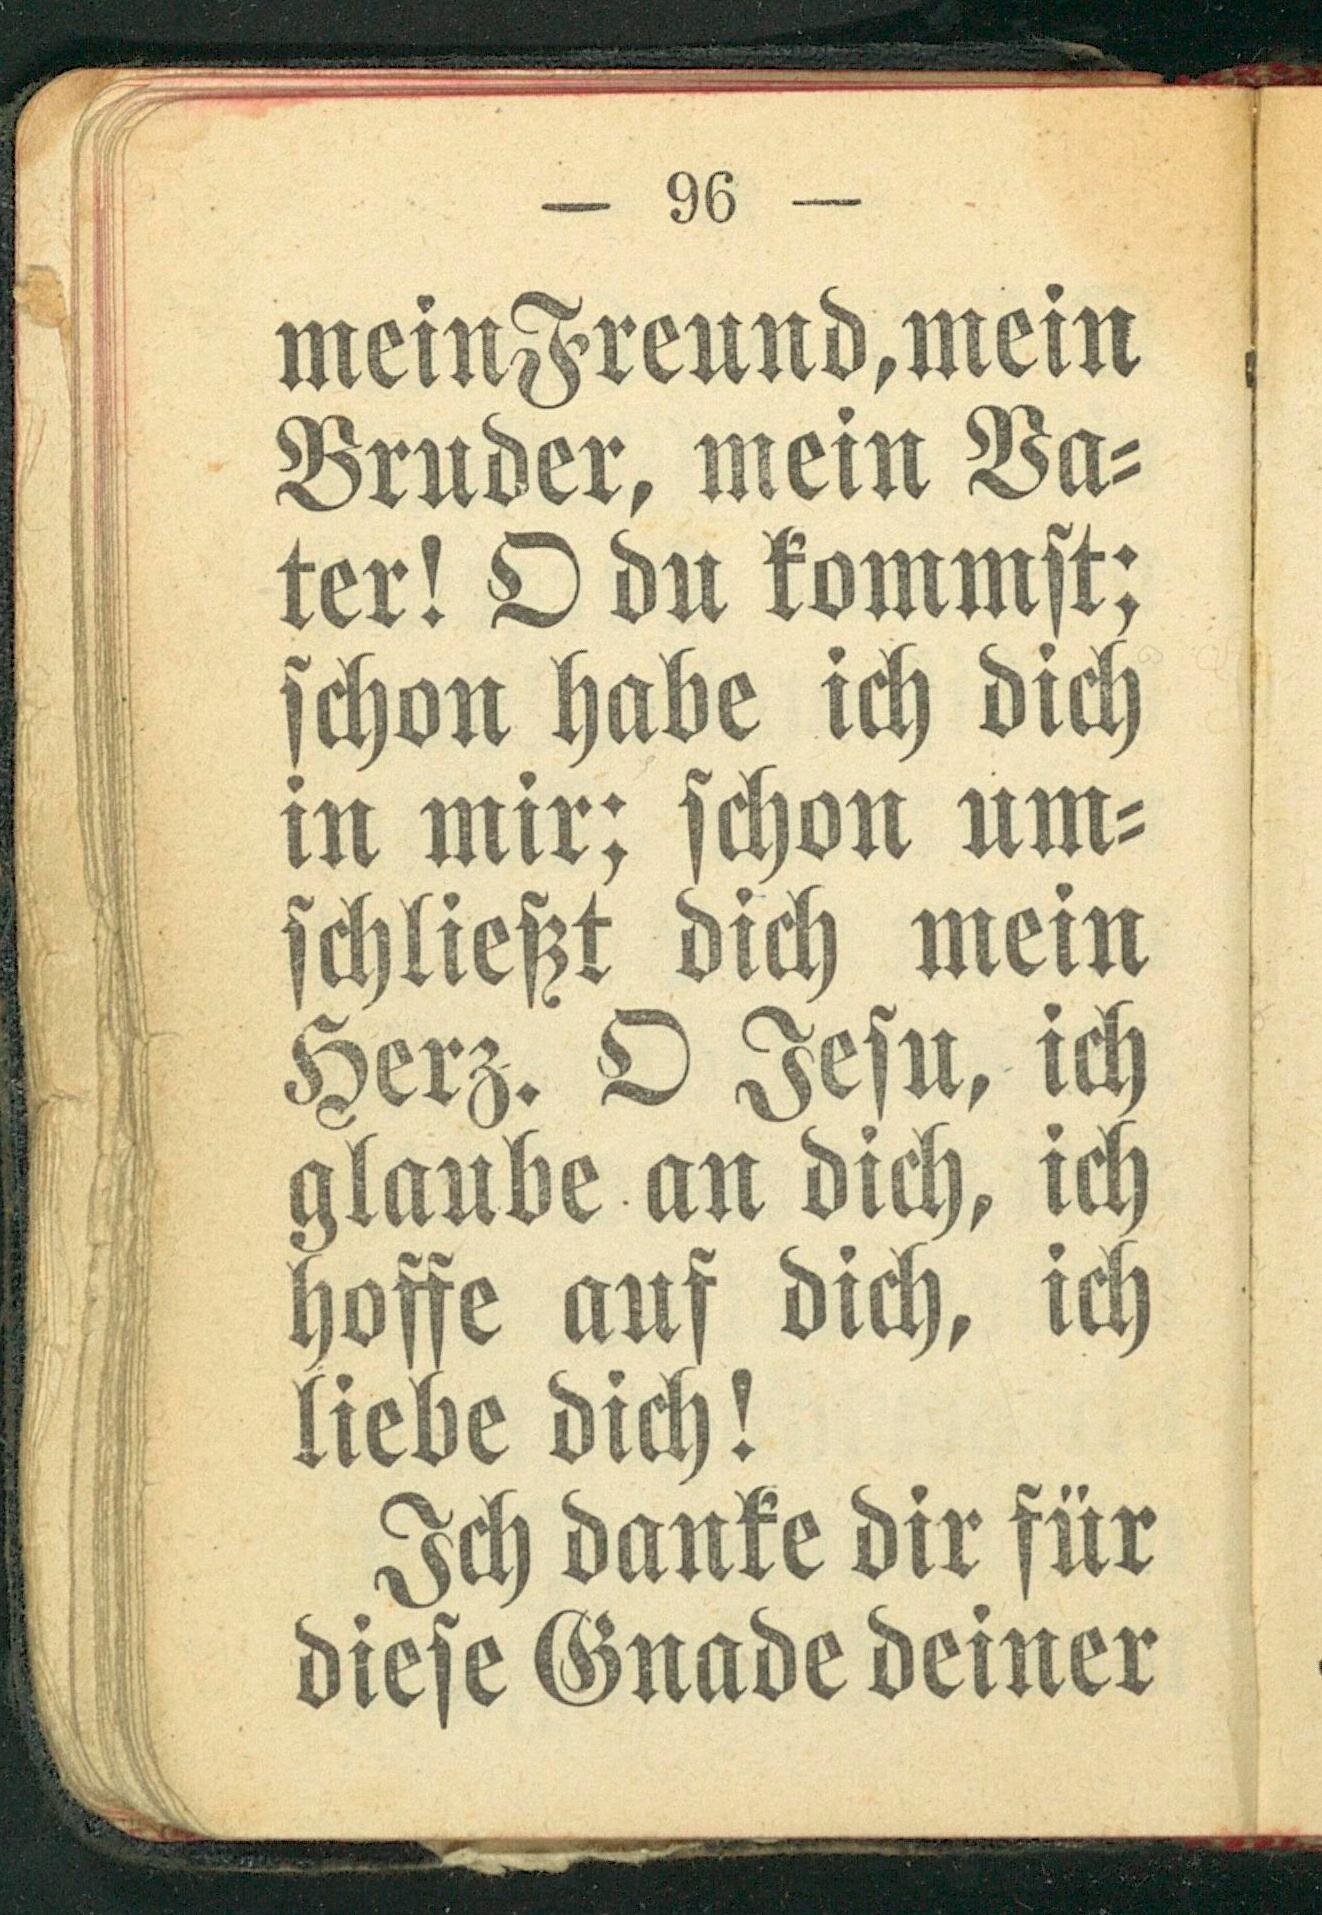 — 96 —
mein Freund, mein
Bruder, mein Va-
ter! O du kommst;
schon habe ich dich
in mir; schon um-
schließt dich mein
Herz. O Jesu, ich
glaube an dich, ich
hoffe auf dich, ich
liebe dich!
Ich danke dir für
diese Gnade deiner